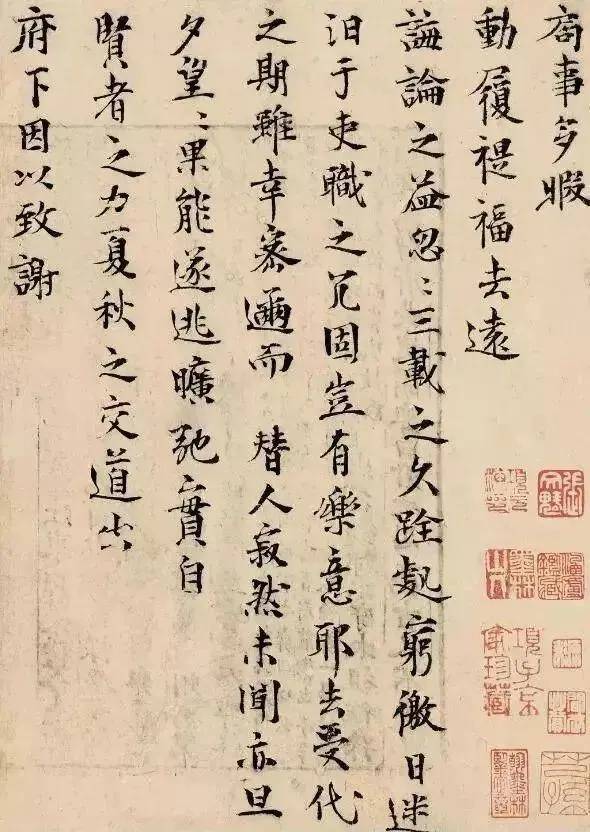 局事多暇
動履禔福去遠
誨論之益忽〻三載之久跧處窮徼日迷
汩于吏職之冗固豈有樂意耶去受代
之期雖幸密邇而 替人寂然未聞亦旦
夕望〻果能遂逃曠弛實自
賢者之力夏秋之交道出
府下因以致謝
項子京家珍藏